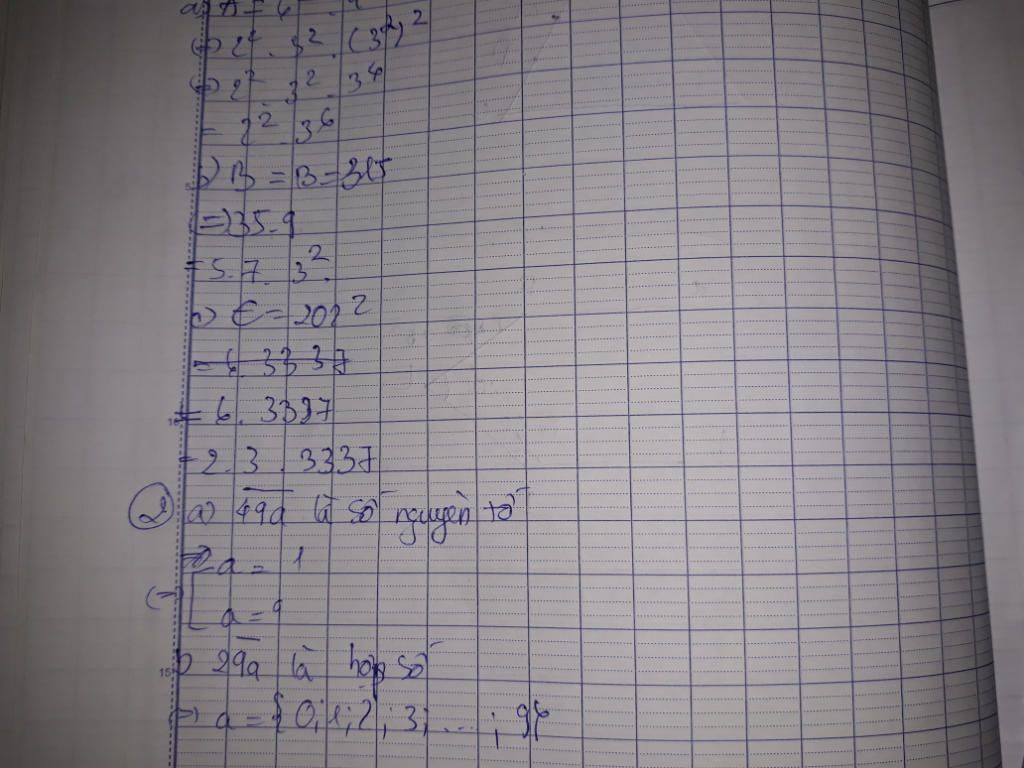 a) A = 6
(=) 2². 3². (3²)²
(=) 2² 3². 3⁴
= 2². 3⁶
b) B = B = 315
= 35.9
= 5.7. 3².
c) C = 202²
= 6. 3337
= 6. 3337
= 2. 3. 3337
② a) 49a là số nguyên tố
a = 1
a = 9
b) 29a là hợp số
=) a = { 0; 1; 2; 3; ...; 9}